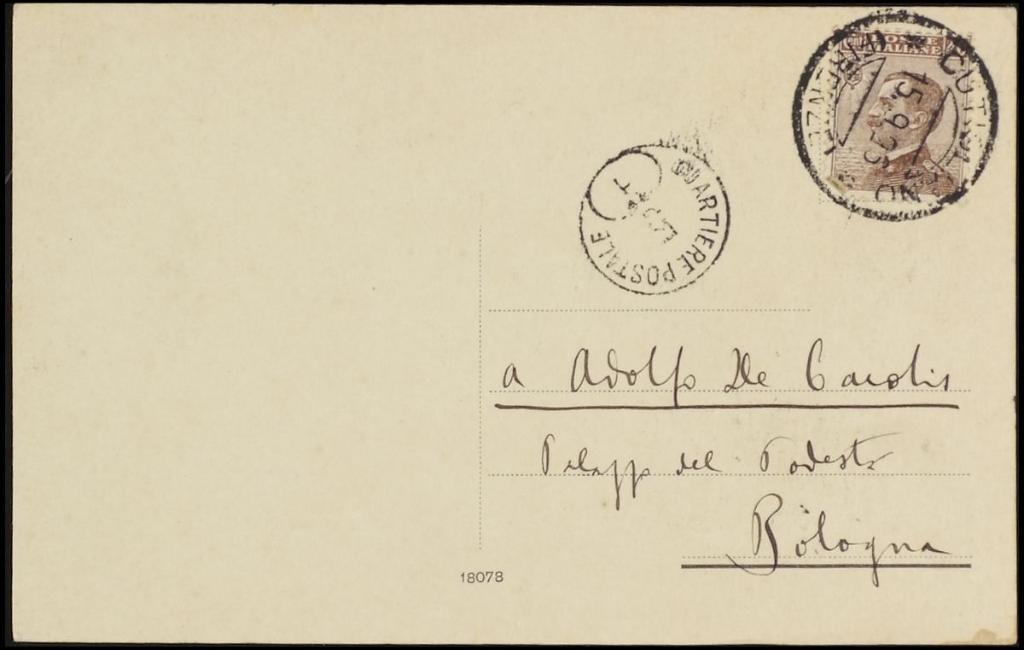 POSTE ITALIANE
15.9.23
QUARTIERE POSTALE
a Adolfo De Carolis
Palazzo del Podestà
Bologna
18078